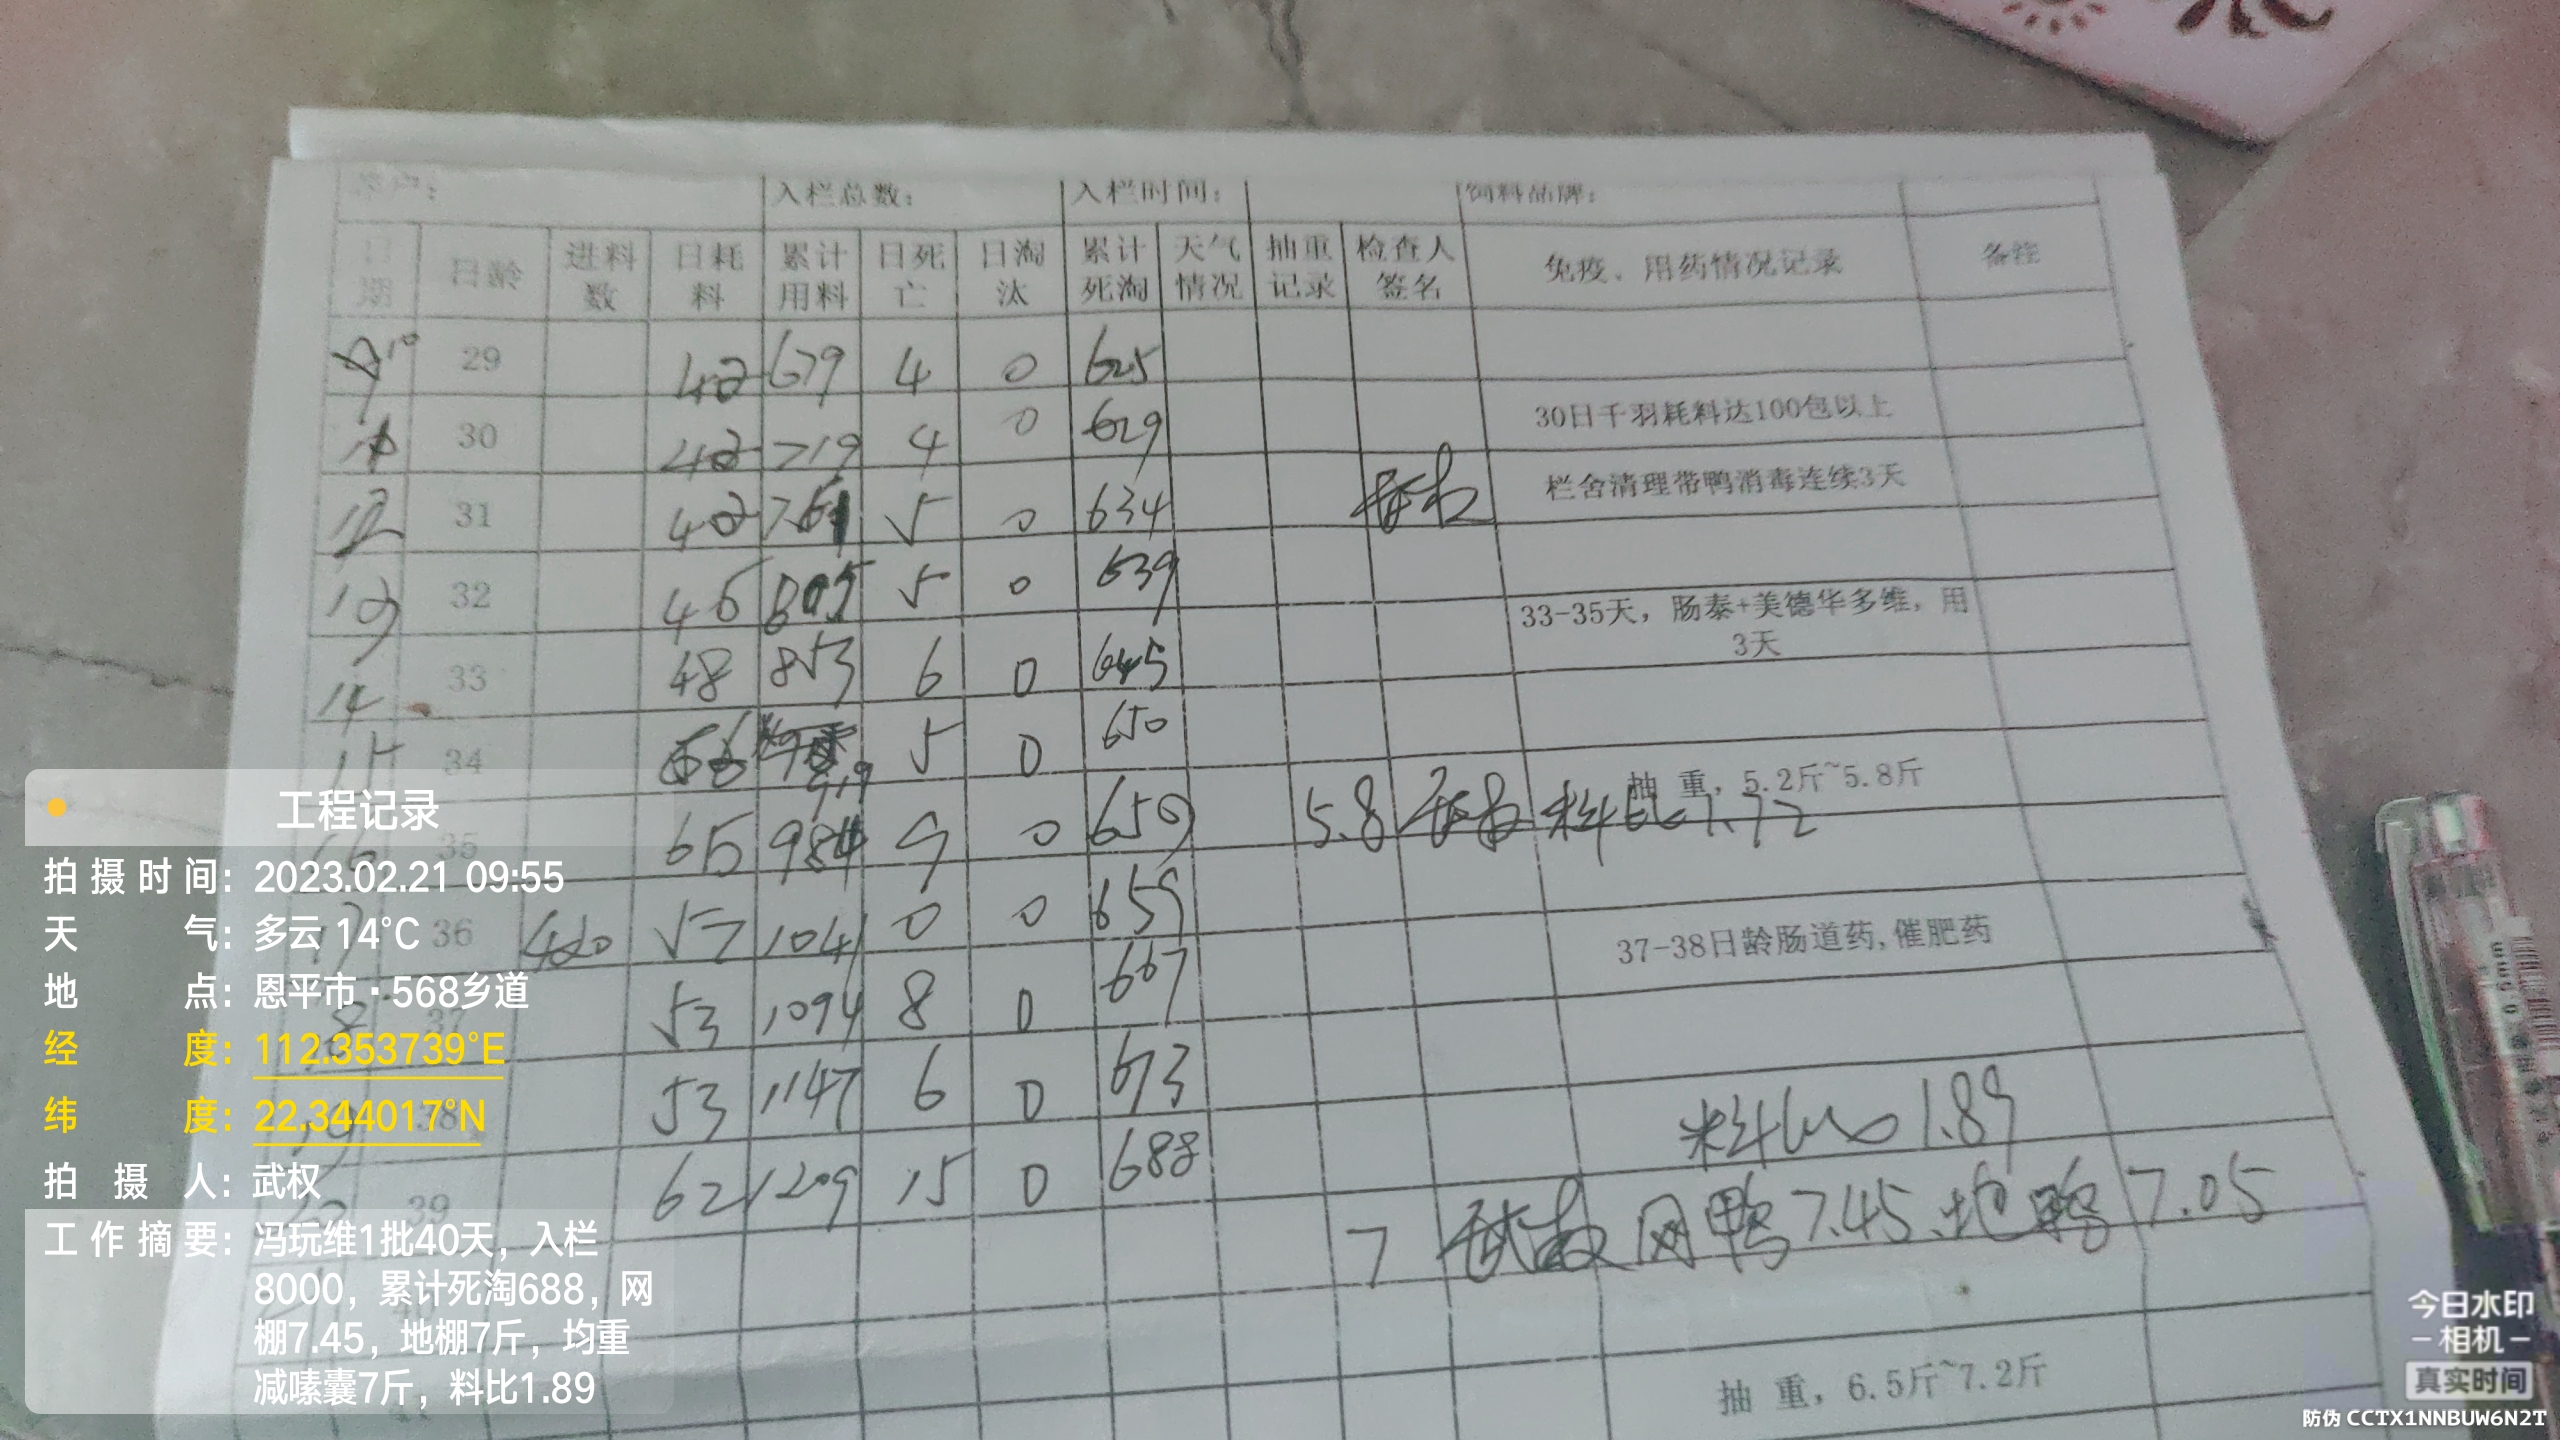 入栏总数： 入栏时间： 饲料品牌：
日期 日龄 进料数 日耗料 累计用料 日死亡 日淘汰 累计死淘 天气情况 抽重记录 检查人签名 免疫、用药情况记录 备注
29 42 679 4 0 625
30 42 719 4 0 629 30日千羽耗料达100包以上
12 31 42 761 5 0 634 栏舍清理带鸭消毒连续3天
13 32 45 805 5 0 639 33-35天，肠泰+美德华多维，用3天
14 33 48 853 6 0 645
15 34 66 919 5 0 650 抽 重，5.2斤~5.8斤
16 35 65 984 9 0 659 5.8 料比1.72
17 36 460 57 1041 0 0 659 37-38日龄肠道药,催肥药
18 37 53 1094 8 0 667
19 38 53 1147 6 0 673 料比 1.89
39 62 1209 15 0 688
7 武权 网鸭7.45.地鸭7.05
抽 重，6.5斤~7.2斤
工程记录
拍摄时间：2023.02.21 09:55
天气：多云 14°C
地点：恩平市·568乡道
经度：112.353739°E
纬度：22.344017°N
拍摄人：武权
工作摘要：冯玩维1批40天，入栏
8000，累计死淘688，网
棚7.45，地棚7斤，均重
减嗉囊7斤，料比1.89
0.5mm
今日水印
相机
真实时间
防伪 CCTX1NNBUW6N2T